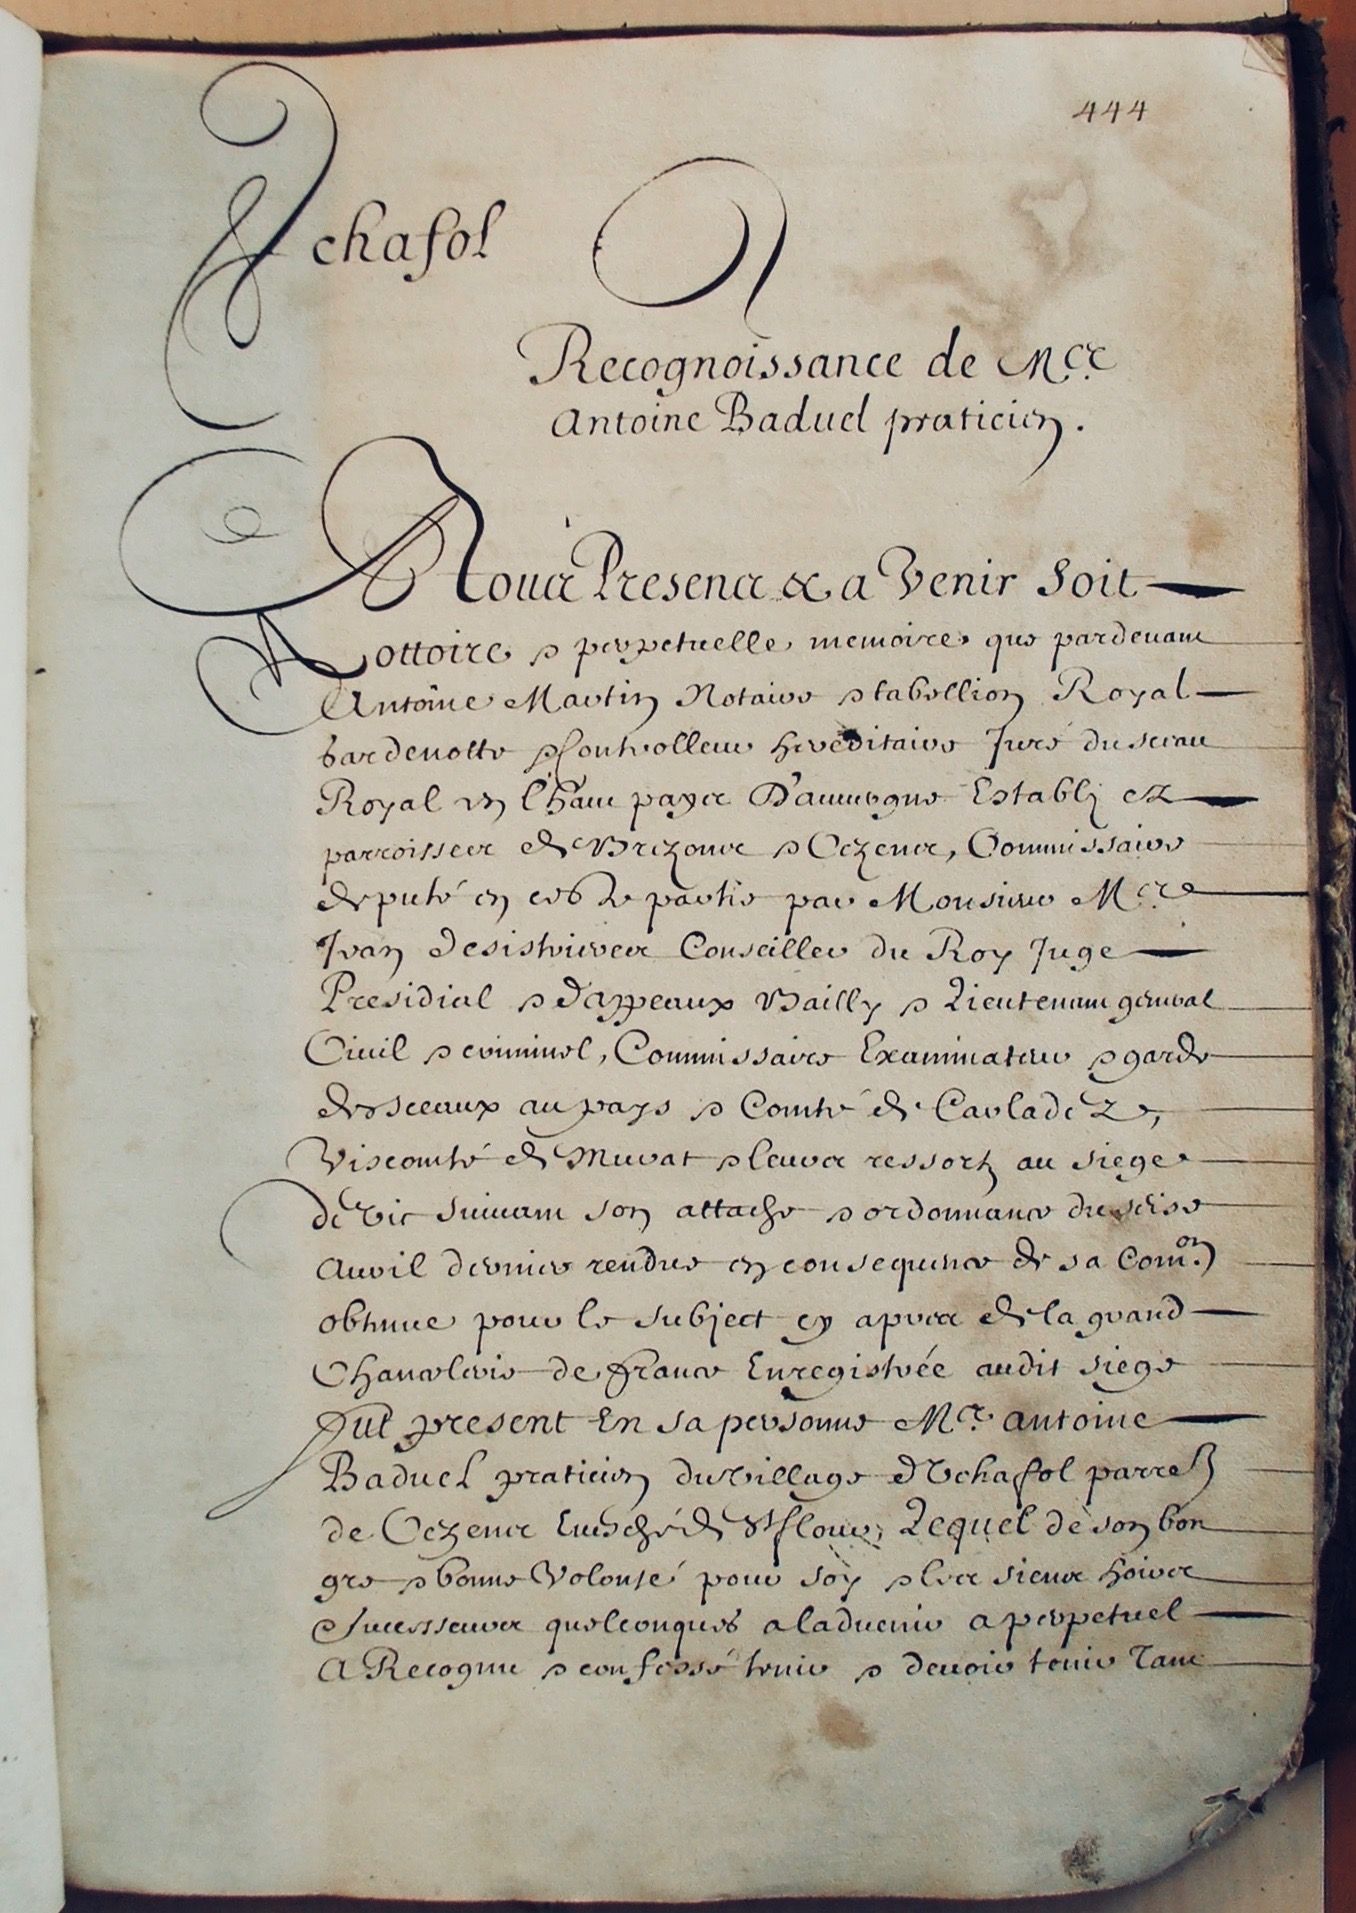 444
Vchafol
Recognoissance de Mre
Antoine Baduel praticien.
A Tous Presens & a Venir Soit
Nottoire & perpetuelle memoire que pardevant
Antoine Martin Notaire & tabellion Royal
Gardenotte & Controlleur hereditaire Juré du sceau
Royal en l'haut payx D'auvergne Establi ez
parroisses de Brezons & Cezens, Commissaire
deputé en ceste partie par Monsieur Mre
Jean Desistrieres Conseiller du Roy Juge
Presidial & d'appeaux Bailly & Lieutenant general
Civil & criminel, Commissaire Examinateur & garde
des sceaux au pays & Comté de Carladez,
Viscomté de Murat & leurs ressortz au siege
de Vic suivant son attache & ordonnance du seise
Avril dernier rendue en consequence de sa Comon.
obtenue pour le subject cy apres de la grand
Chancelerie de france Enregistrée audit siege
fut present En sa personne Mre antoine
Baduel praticien du village d'Vchafol parresse
de Cezens Evesché de St flour, Lequel de son bon
gre & bonne Volonté pour soy & les siens hoirs
& successeurs quelconques a ladvenir a perpetuel
A Recognu & confessé tenir & devoir tenir Tant